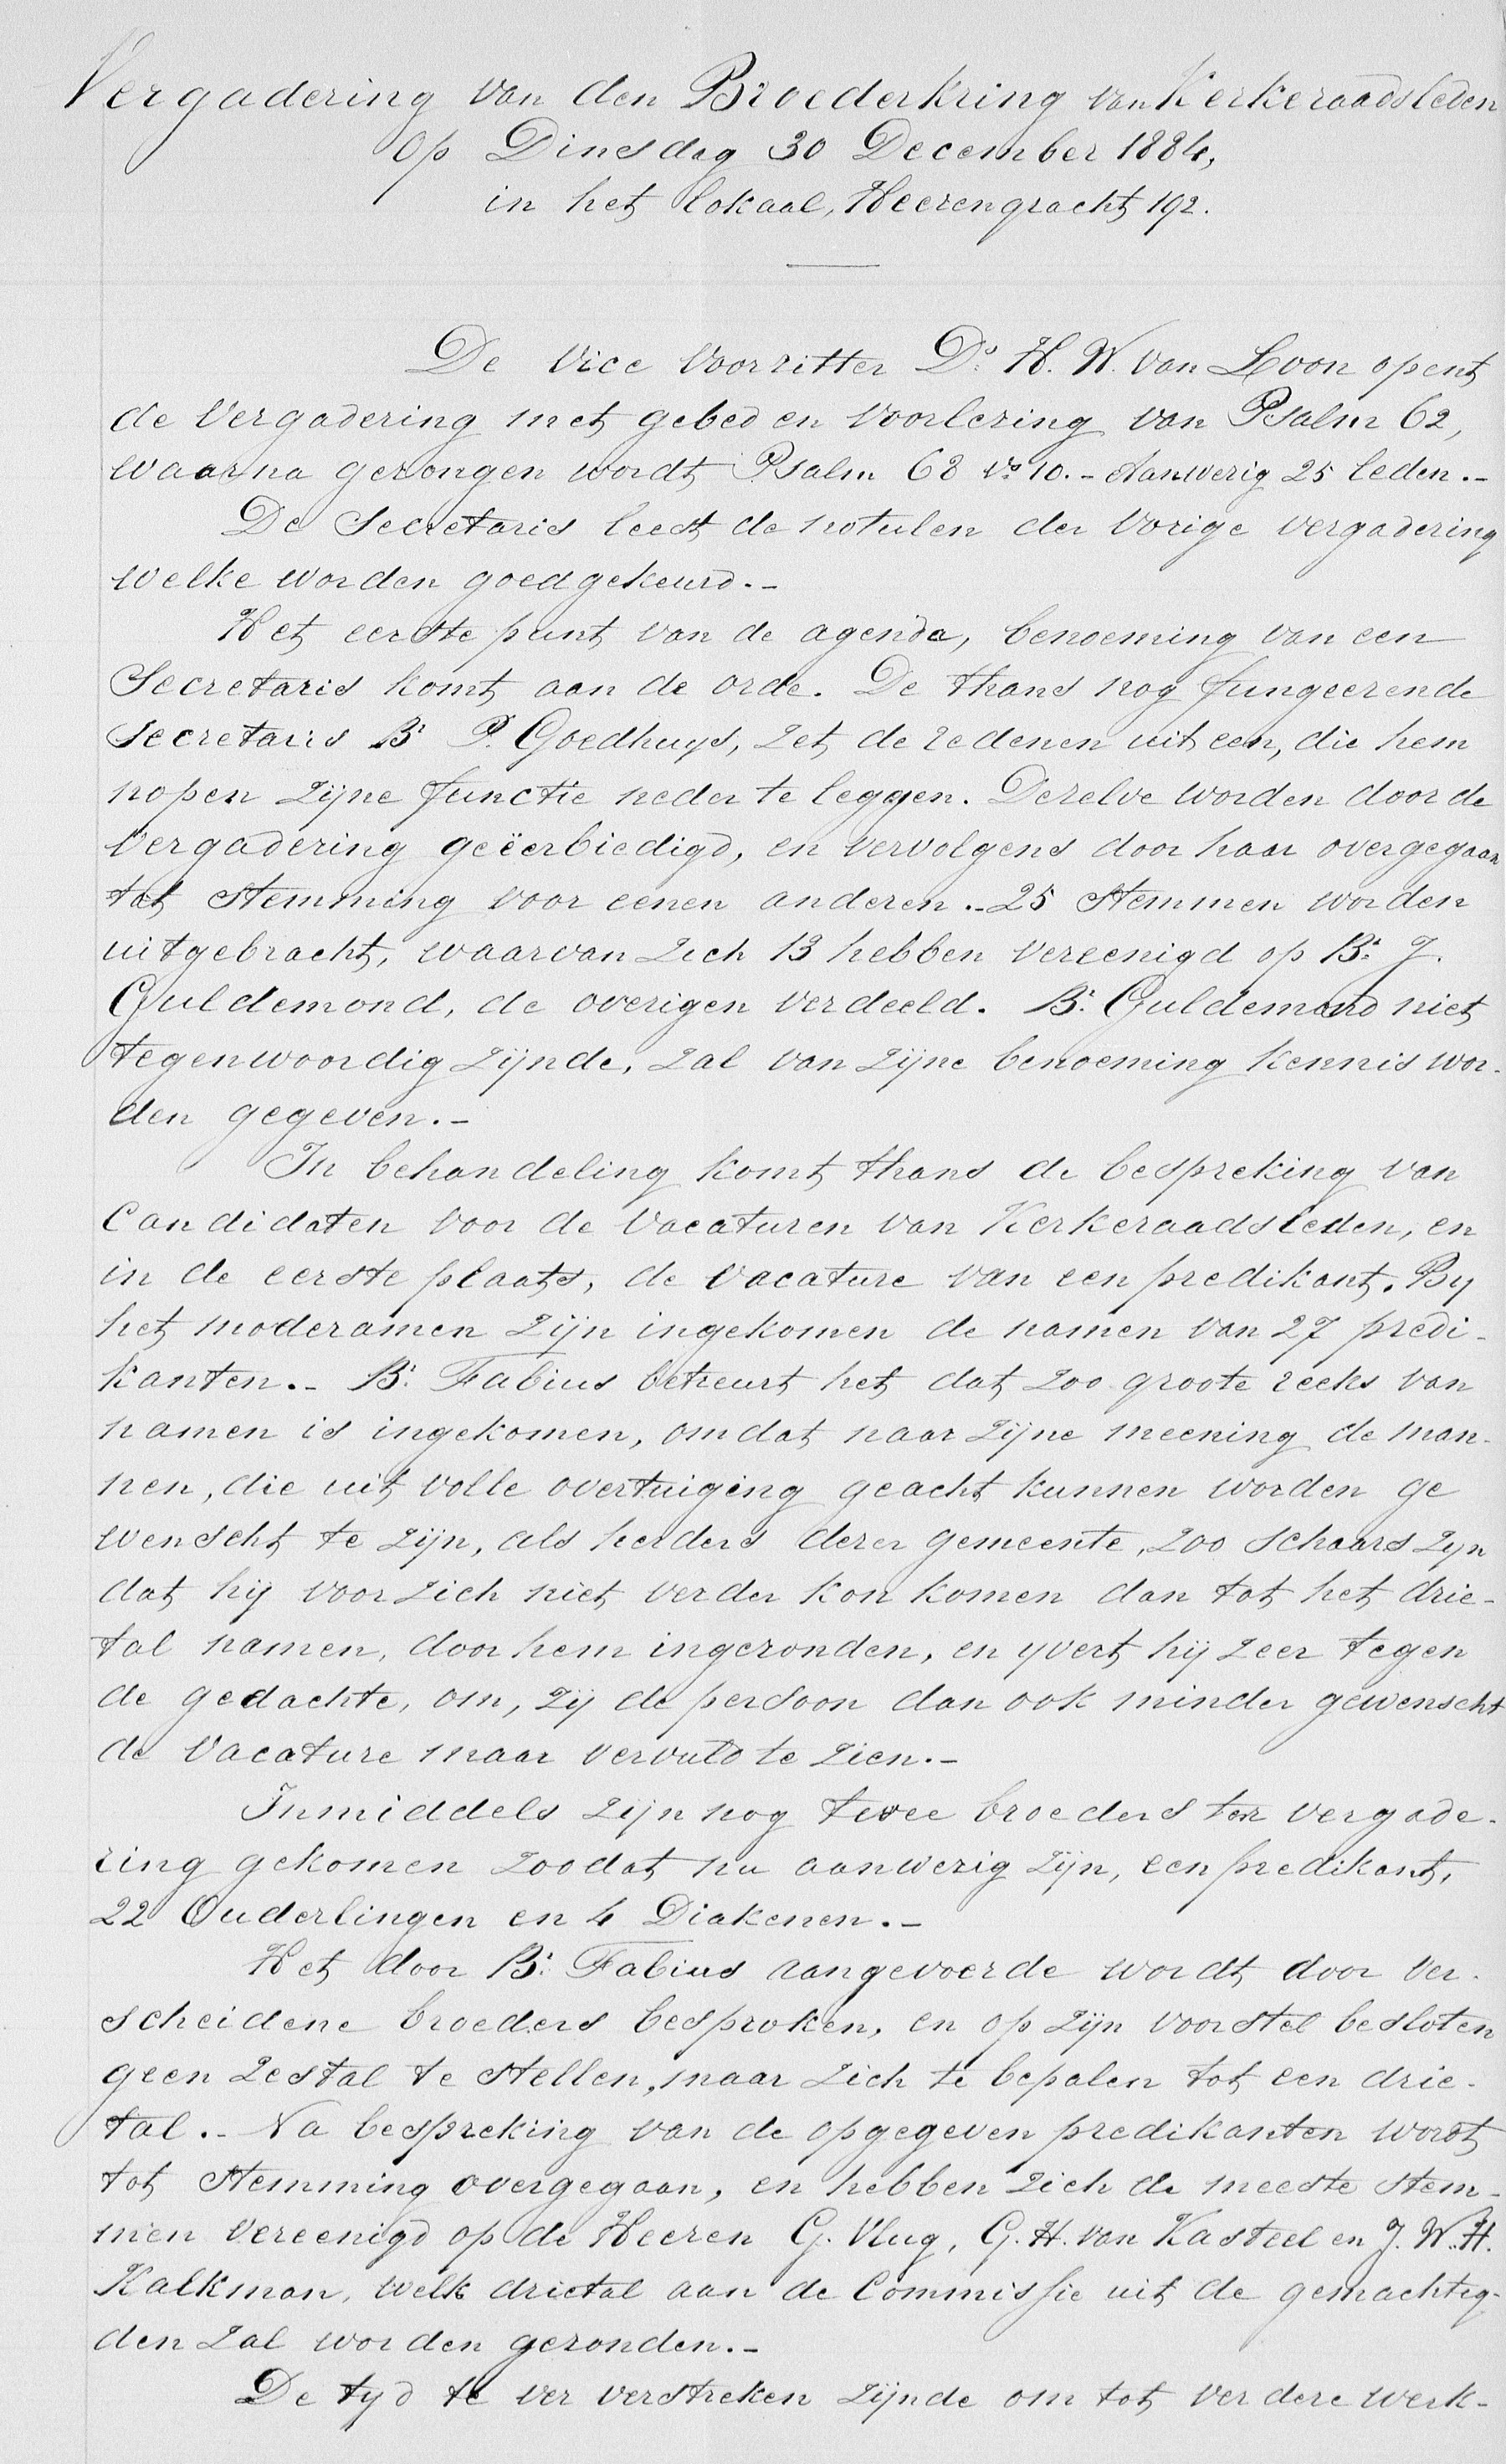 Vergadering van den Broederkring van Kerkeraadsleden
op Dinsdag 30 December 1884,
in het lokaal, Heerengracht 192.
De Vice Voorzitter Ds. H. W. van Loon opent
de Vergadering met gebed en voorlezing van Psalm 62,
waarna gezongen wordt Psalm 68 vs. 10. - Aanwezig 25 leden. -
De Secretaris leest de notulen der vorige vergadering
welke worden goedgekeurd. -
Het eerste punt van de agenda, benoeming van een
Secretaris komt aan de orde. De thans nog fungeerende
Secretaris Br. P. Goedhuys, zet de redenen uiteen, die hem
nopen zijne functie neder te leggen. Dezelve worden door de
vergadering geëerbiedigd, en vervolgens door haar overgegaan
tot stemming voor eenen anderen. - 25 stemmen worden
uitgebracht, waarvan zich 13 hebben vereenigd op Br. J.
Guldemond, de overigen verdeeld. Br. Guldemond niet
tegenwoordig zijnde, zal van zijne benoeming kennis wor-
den gegeven. -
In behandeling komt thans de bespreking van
Candidaten voor de vacaturen van Kerkeraadsleden, en
in de eerste plaats, de vacature van een predikant. By
het moderamen zijn ingekomen de namen van 27 predi-
kanten. - Br. Fabius betreurt het dat zoo groote reeks van
namen is ingekomen, omdat naar zijne meening de man-
nen, die uit volle overtuiging geacht kunnen worden ge
wenscht te zijn, als herders dezer gemeente, zoo schaars zyn
dat hij voor zich niet verder kon komen dan tot het drie-
tal namen, door hem ingezonden, en yvert hij zeer tegen
de gedachte, om, zij de persoon dan ook minder gewenscht
de vacature maar vervuld te zien. -
Inmiddels zijn nog twee broeders ter vergade-
ring gekomen zoodat nu aanwezig zijn, een predikant,
22 Ouderlingen en 4 Diakenen. -
Het door Br. Fabius aangevoerde wordt door ver-
scheidene broeders besproken, en op zijn voorstel besloten
geen zestal te stellen, maar zich te bepalen tot een drie-
tal. - Na bespreking van de opgegeven predikanten wordt
tot stemming overgegaan, en hebben zich de meeste stem-
men vereenigd op de Heeren G. Vlug, G. H. van Kasteel en J. W. H.
Kalkman, welk drietal aan de Commissie uit de gemachtig-
den zal worden gezonden. -
De tyd te ver verstreken zijnde om tot verdere werk-